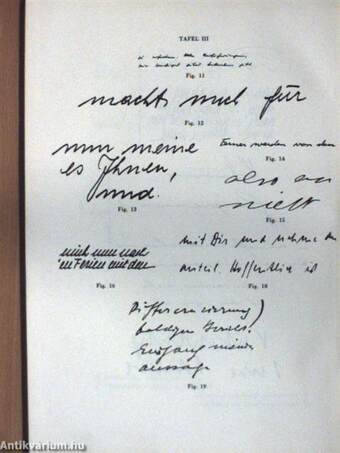 TAFEL III
Fig. 11
machts mich für
Fig. 12
nun meine
es Ihnen,
und.
Fig. 13
Ferner werden von dem
Fig. 14
also an
nicht
Fig. 15
mich nun nach
in Ferien mit den
Fig. 16
mit Dir und nehme
anteil. Hoffentlich ist
Fig. 18
Differenzierung)
baldigen
Eingang meiner
aussage
Fig. 19
Antikvárium.hu